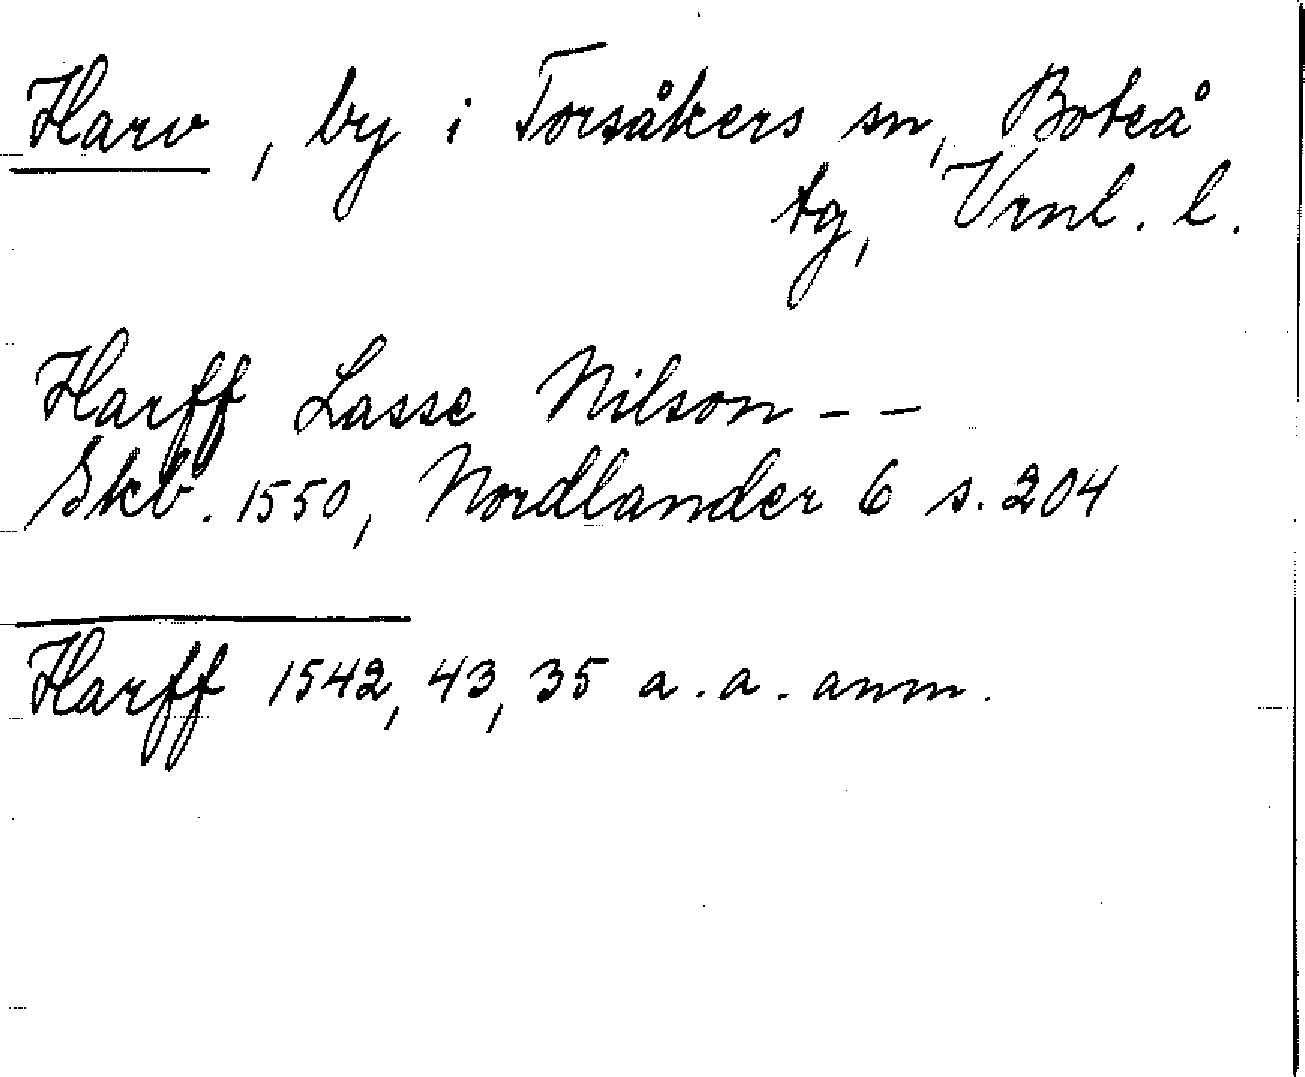 Harv, by i Torsåkers sn, Boteå
tg, Vrnl. l.
Harff Lasse Nilson - -
Skb. 1550, Nordlander 6 s. 204
Harff 1542, 43, 35 a. a. anm.